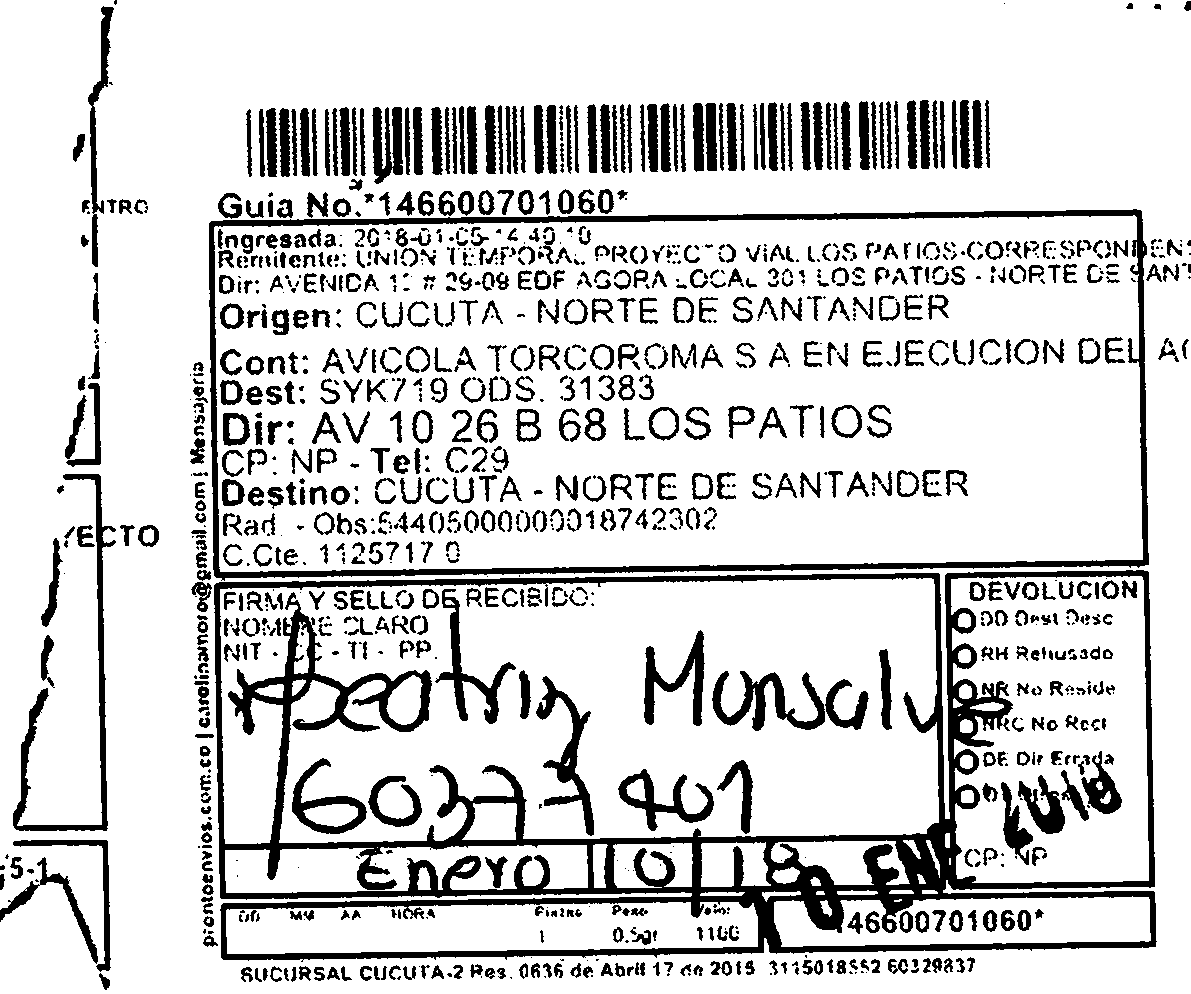 ENTRO
Guia No.*146600701060*
Ingresada: 2018-01-05-14:40:10
Remitente: UNION TEMPORAL PROYECTO VIAL LOS PATIOS-CORRESPONDEN
Dir: AVENIDA # 29-09 EDF AGORA LOCAL 301 LOS PATIOS - NORTE DE SANT
Origen: CUCUTA - NORTE DE SANTANDER
Cont: AVICOLA TORCOROMA S A EN EJECUCION DEL AC
Dest: SYK719 ODS. 31383
Dir: AV 10 26 B 68 LOS PATIOS
CP: NP - Tel: C29
Destino: CUCUTA - NORTE DE SANTANDER
Rad. - Obs:544050000000018742302
C.Cte. 1125717 0
YECTO
prontoenvios.com.co | carolinamoro@gmail.com | Mensajeria
FIRMA Y SELLO DE RECIBIDO:
NOMBRE CLARO
NIT - CC - TI - PP.
Beatriz Monsalve
60377401
Enero 10/18
DEVOLUCION
DD Dest Desc
RH Rehusado
NR No Reside
NRC No Recl
DE Dir Errada
CP: NP
10 ENE 2018
5-1
DD MM AA HORA
Piezas Peso Valor
1 0.5gr 1100
146600701060*
SUCURSAL CUCUTA-2 Res. 0636 de Abril 17 de 2015 3115018552 60329837